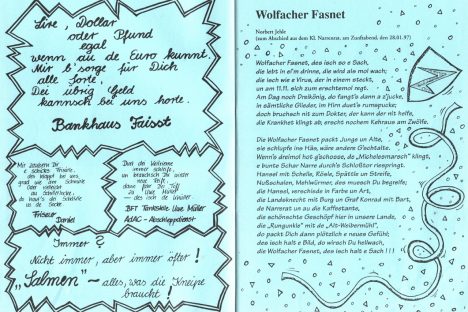 Lire, Dollar
oder Pfund
egal
wenn au de Euro kunnt.
Mir b'sorge für Dich
alle Sorte,
Dei übrig Geld
kannsch bei uns horte.
Bankhaus Faisst
Friseur
Daniel
BFT Tankstelle Uwe Müller
ADAC - Abschleppdienst
Immer ?
Nicht immer, aber immer öfter !
"Salmen" - alles, was die Kneipe
braucht !
Wolfacher Fasnet
Norbert Jehle
(zum Abschied aus dem Kl. Narrenrat, am Zunftabend, den 28.01.97)
Wolfacher Fasnet, des isch so e Sach,
die lebt in ei'm drinne, die wird als mol wach;
de isch wie e Virus, der in einem steckt,
un am 11.11. sich zum erschtemol regt.
Am Dag noch Dreikönig, do fangt's dann a z'jucke,
in sämtliche Glieder, im Hirn duet's rumspucke;
doch bruchsch nit zum Dokter, der kann der nit helfe,
die Krankheit klingt ab, erscht nochem Kehraus am Zwölfe.
Die Wolfacher Fasnet packt Junge un Alte,
sie schlupfe ins Häs, wäre andere G'schtalte.
Wenn's dreimol hot g'schosse, de „Michelesmarsch" klingt,
e bunte Schar Narre durchs Schloßtor neispringt.
Hansel mit Schelle, Rösle, Spättle un Streife,
Nußschalen, Mehlwürmer, des muesch Du begreife;
die Hansel, verschiede in Farbe un Art,
die Landsknecht mit Burg un Graf Konrad mit Bart,
de Narrerat un au die Kaffeetante,
die schönschte G'schöpf hier in unsere Lande,
die „Rungunkle" mit de „Alt-Weibermühl",
do packt Dich dann plötzlich e neues Gefühl;
des isch halt e Bild, do wirsch Du hellwach,
die Wolfacher Fasnet, des isch halt e Sach ! ! !